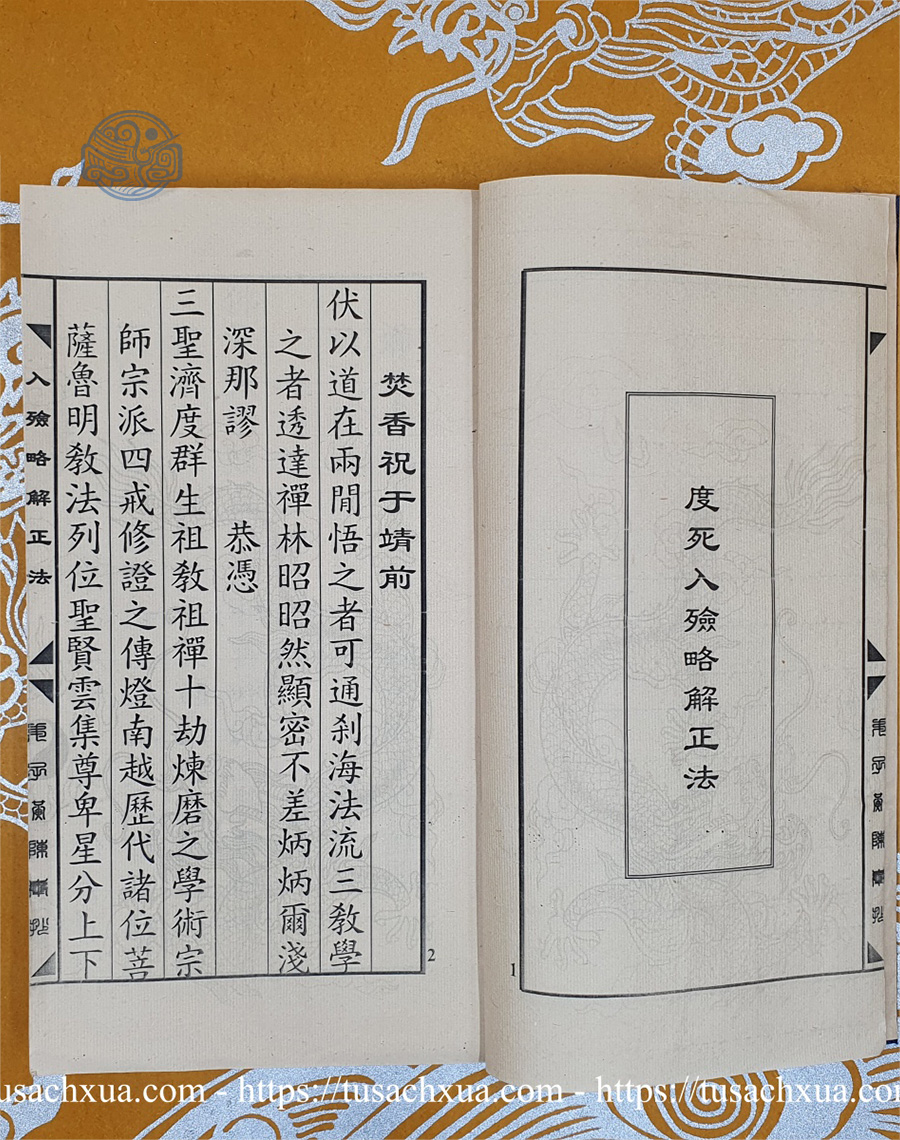 度死入殮略解正法
1
焚香祝于靖前
伏以道在兩閒悟之者可通刹海法流三敎學
之者透達禪林昭昭然顯密不差炳炳爾淺
深那謬 恭憑
三聖濟度群生祖敎祖禪十劫煉磨之學術宗
師宗派四戒修證之傳燈南越歷代諸位菩
薩魯明敎法列位聖賢雲集尊卑星分上下
2
入殮略解正法
tusachxua.com - https://tusachxua.com - https://tusachxua.com